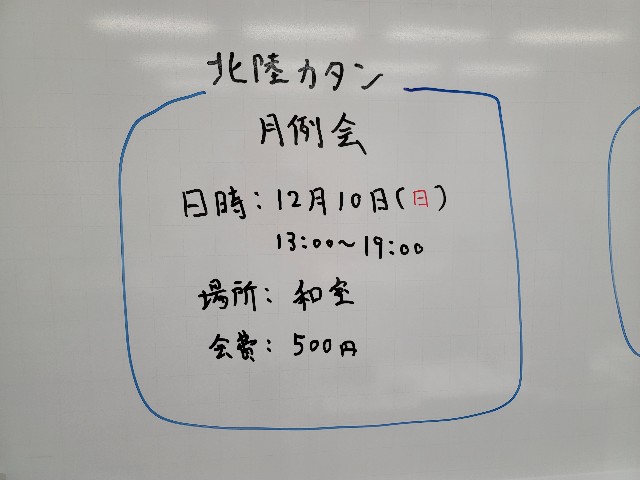 北陸カタン
月例会
日時：12月10日(日)
13:00～19:00
場所：和室
会費：500円